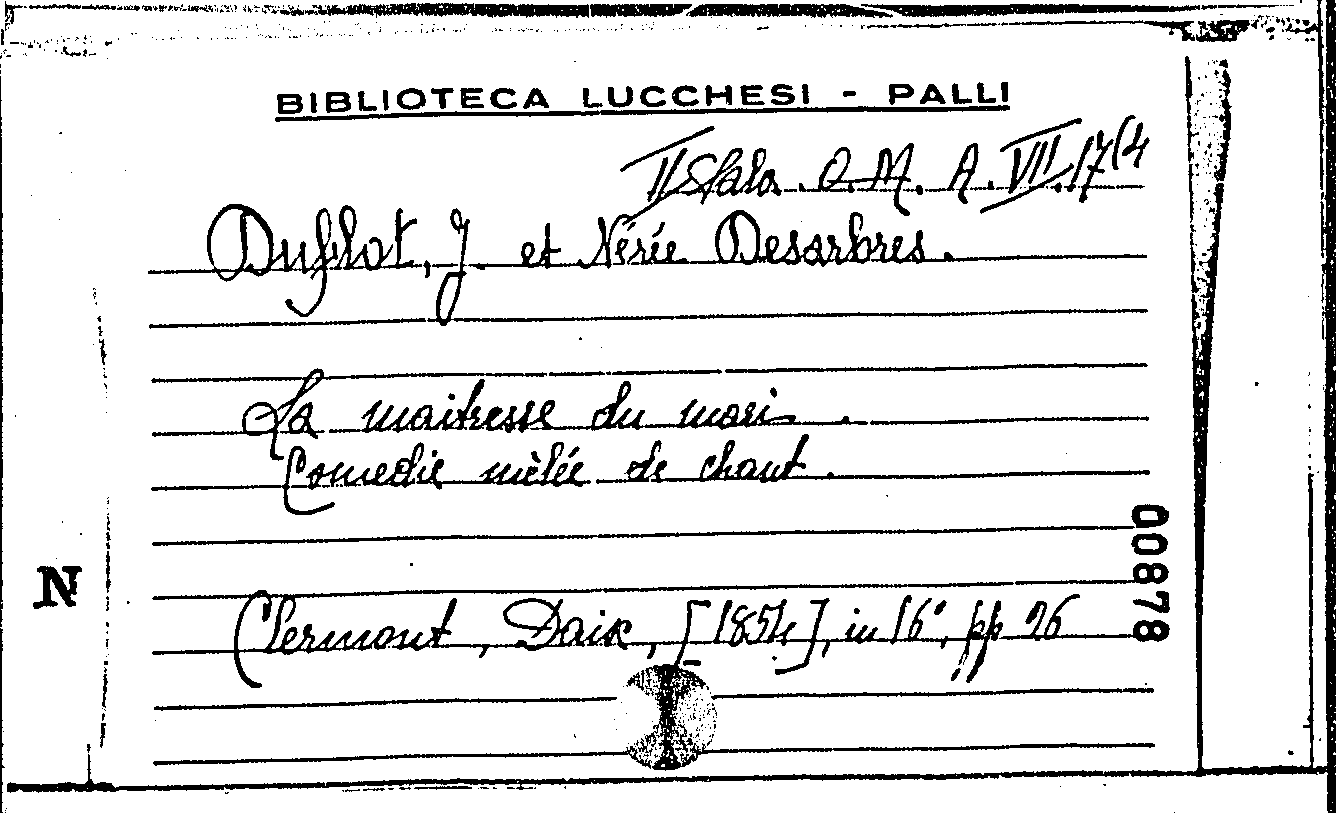 BIBLIOTECA LUCCHESI - PALLI
II Sala. O. M. A. VII. 17(4
Duflot, J. et Nérée Desarbres.
La maitresse du mari.
Comedie mèlée de chant.
N
00878
Clermont, Daix, [1854], in 16°, pp 26